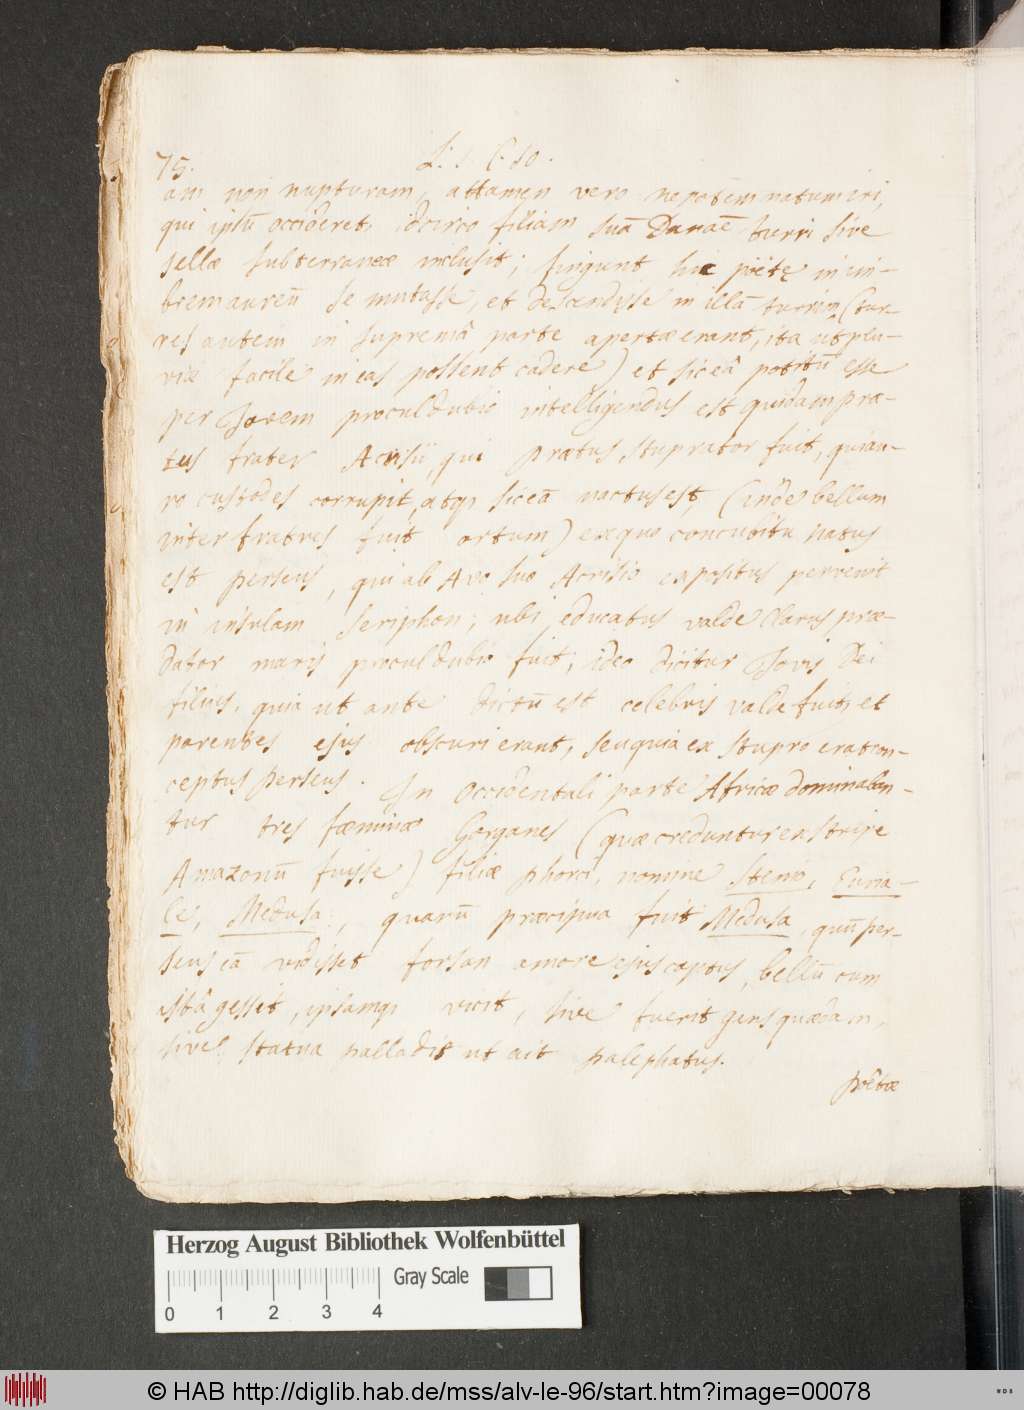 75. L. 1. C. 10.
am non nupturam, attamen vero nepotem natum iri,
qui ipsū occideret, idcirco filiam suā Danaē turri sive
sellæ subterraneæ inclusit; fingunt hic pöetę in im-
brem aureū se mutasse, et descendisse in illā turrim (tur-
res autem in supremâ parte apertæ erant, ita ut plu-
viæ facile in eas possent cadere) et sic eâ potitū esse
per Jovem procul dubio intelligendus est quidam præ-
tus frater Acrisii, qui prætus stuprator fuit, qui au-
ro custodes corrupit, atq; sic eā nactus est, (inde bellum
inter fratres fuit ortum) ex quo concubitu natus
est Perseus, qui ab Avo suo Acrisio expositus pervenit
in insulam Seriphon; ubi educatus valde clarus præ-
dator maris procul dubio fuit; ideo dicitur Jovis Dei
filius, quia ut ante dictū est celebris valde fuit, et
parentes ejus obscuri erant, seu quia ex stupro erat con-
ceptus Perseus. In Occidentali parte Africæ dominaban-
tur tres fæminæ Gorganes (quæ credunturex stirpe
Amazonū fuisse) filiæ phorci, nomine Steno, Euria-
le, Medusa, quarū præcipua fuit Medusa, quū Per-
seus eā vidisset forsan amore ejus captus, bellū cum
istâ gessit, ipsamq; vicit, sive fuerit gens quædam,
sive statua palladis ut ait palephatus.
pöetæ
Herzog August Bibliothek Wolfenbüttel
Gray Scale
0 1 2 3 4
© HAB http://diglib.hab.de/mss/alv-le-96/start.htm?image=00078